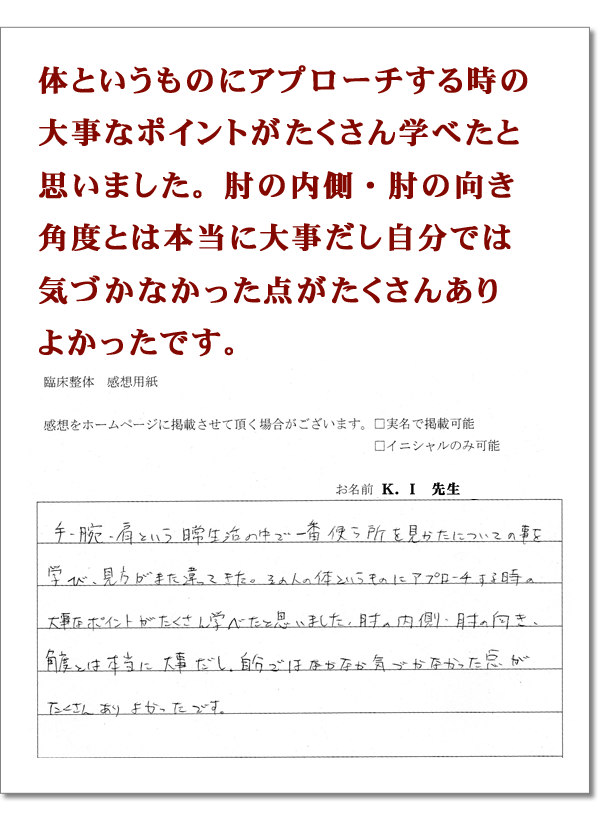 体というものにアプローチする時の
大事なポイントがたくさん学べたと
思いました。肘の内側・肘の向き
角度とは本当に大事だし自分では
気づかなかった点がたくさんあり
よかったです。
臨床整体　感想用紙
感想をホームページに掲載させて頂く場合がございます。□実名で掲載可能
□イニシャルのみ可能
お名前 K. I 先生
手・腕・肩という日常生活の中で一番使う所を見かたについての事を
学び、見方がまた違ってきた。その人の体というものにアプローチする時の
大事なポイントがたくさん学べたと思いました。肘の内側・肘の向き、
角度とは本当に大事だし、自分ではなかなか気づかなかった点が
たくさんありよかったです。